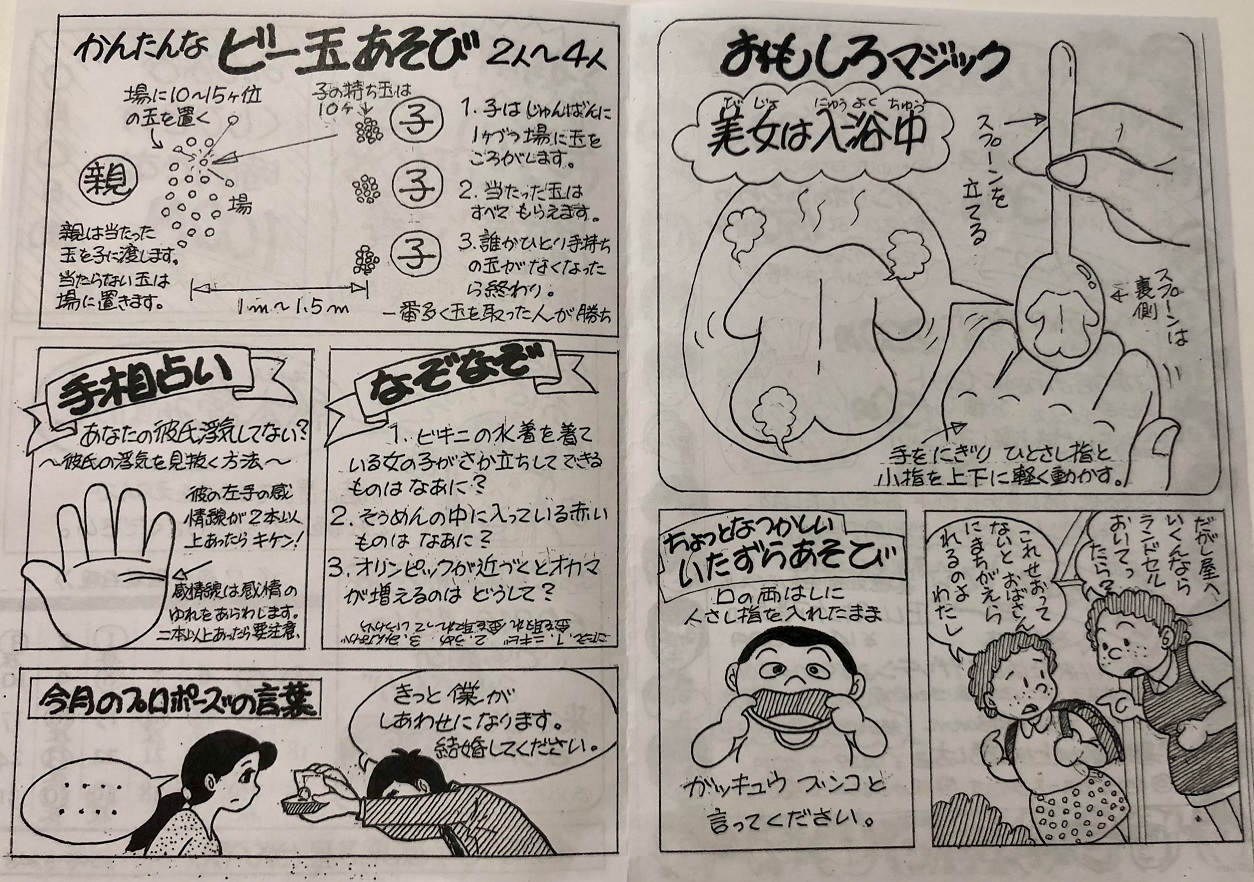 かんたんな ビー玉あそび 2人〜4人
場に10〜15ヶ位
の玉を置く
子の持ち玉は
10ヶ
親
子
子
子
場
親は当たった
玉を子に渡します。
当たらない玉は
場に置きます。
1m〜1.5m
1. 子はじゅんばんに
1ヶづつ場に玉を
ころがします。
2. 当たった玉は
すべてもらえます。
3. 誰かひとり手持ち
の玉がなくなった
ら終わり。
一番多く玉を取った人が勝ち
手相占い
あなたの彼氏浮気してない?
〜彼氏の浮気を見抜く方法〜
彼の左手の感
情線が2本以
上あったらキケン!
感情線は感情の
ゆれをあらわします。
二本以上あったら要注意、
なぞなぞ
1. ビキニの水着を着て
いる女の子がさか立ちしてできる
ものはなあに?
2. そうめんの中に入っている赤い
ものはなあに?
3. オリンピックが近づくとオカマ
が増えるのはどうして?
今月のプロポーズの言葉
きっと僕が
しあわせになります。
結婚してください。
‥‥
おもしろマジック
びじょ にゅうよくちゅう
美女は入浴中
スプーンを
立てる
スプーンは
裏側
手をにぎり ひとさし指と
小指を上下に軽く動かす。
ちょっとなつかしい
いたずらあそび
口の両はしに
人さし指を入れたまま
ガッキュウ ブンコと
言ってください。
だがし屋へ
いくんなら
ランドセル
おいてっ
たら?
これせおって
ないと おばさん
にまちがえら
れるのよ
わたし